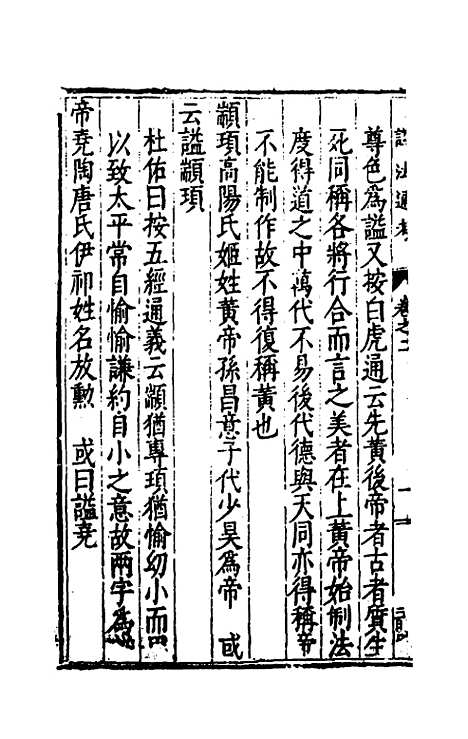 諡法通考 卷之二
尊色爲諡又按白虎通云先黃後帝者古者質生
死同稱各將行合而言之美者在上黃帝始制法
度得道之中萬代不易後代德與天同亦得稱帝
不能制作故不得復稱黃也
顓頊高陽氏姬姓黃帝孫昌意子代少昊爲帝 或
云諡顓頊
杜佑曰按五經通義云顓猶專頊猶愉幼小而
以致太平常自愉愉謙約自小之意故兩字爲
帝堯陶唐氏伊祁姓名放勲 或曰諡堯